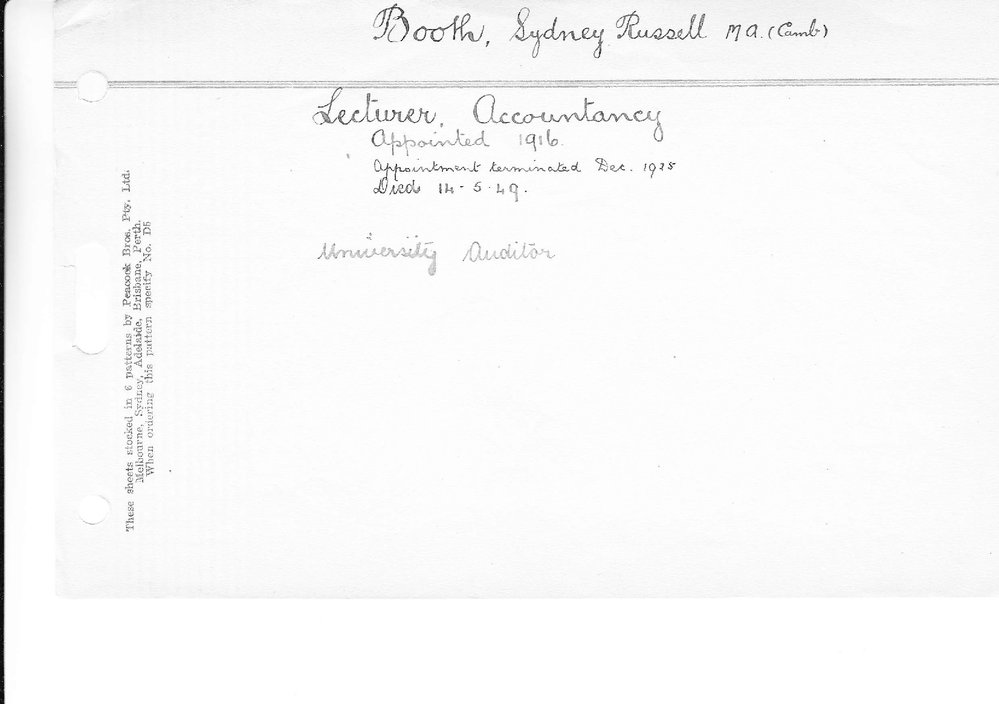 Booth, Sydney Russell M A. (Camb)
Lecturer, Accountancy
Appointed 1916.
Appointment terminated Dec. 1925
Died 14-5-49.
University Auditor
These sheets stocked in 6 patterns by Peacock Bros. Pty. Ltd.
Melbourne, Sydney, Adelaide, Brisbane, Perth.
When ordering this pattern specify No. D5